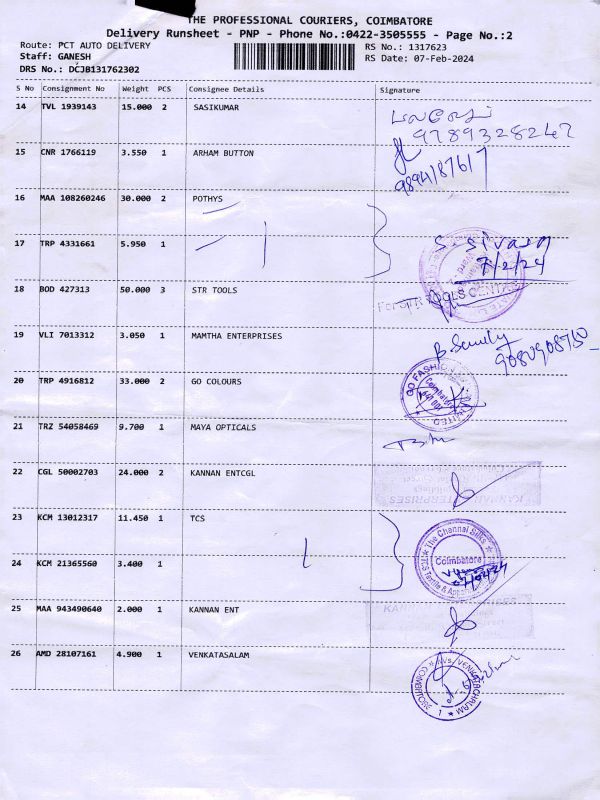 THE PROFESSIONAL COURIERS, COIMBATORE
Delivery Runsheet - PNP - Phone No.:0422-3505555 - Page No.:2
Route: PCT AUTO DELIVERY
RS No.: 1317623
Staff: GANESH
RS Date: 07-Feb-2024
DRS No.: DCJB131762302
S No Consignment No Weight PCS Consignee Details Signature
14 TVL 1939143 15.000 2 SASIKUMAR
9789328247
15 CNR 1766119 3.550 1 ARHAM BUTTON
16 MAA 108260246 30.000 2 POTHYS
17 TRP 4331661 5.950 1
7/2/24
18 BOD 427313 50.000 3 STR TOOLS
19 VLI 7013312 3.050 1 MAMTHA ENTERPRISES
20 TRP 4916812 33.000 2 GO COLOURS
GO FASHION LIMITED
Coimbatore
21 TRZ 54058469 9.700 1 MAYA OPTICALS
22 CGL 50002703 24.000 2 KANNAN ENTCGL
23 KCM 13012317 11.450 1 TCS
The Chennai Silks
Coimbatore
24 KCM 21365560 3.400 1
25 MAA 943490640 2.000 1 KANNAN ENT
26 AMD 28107161 4.900 1 VENKATASALAM